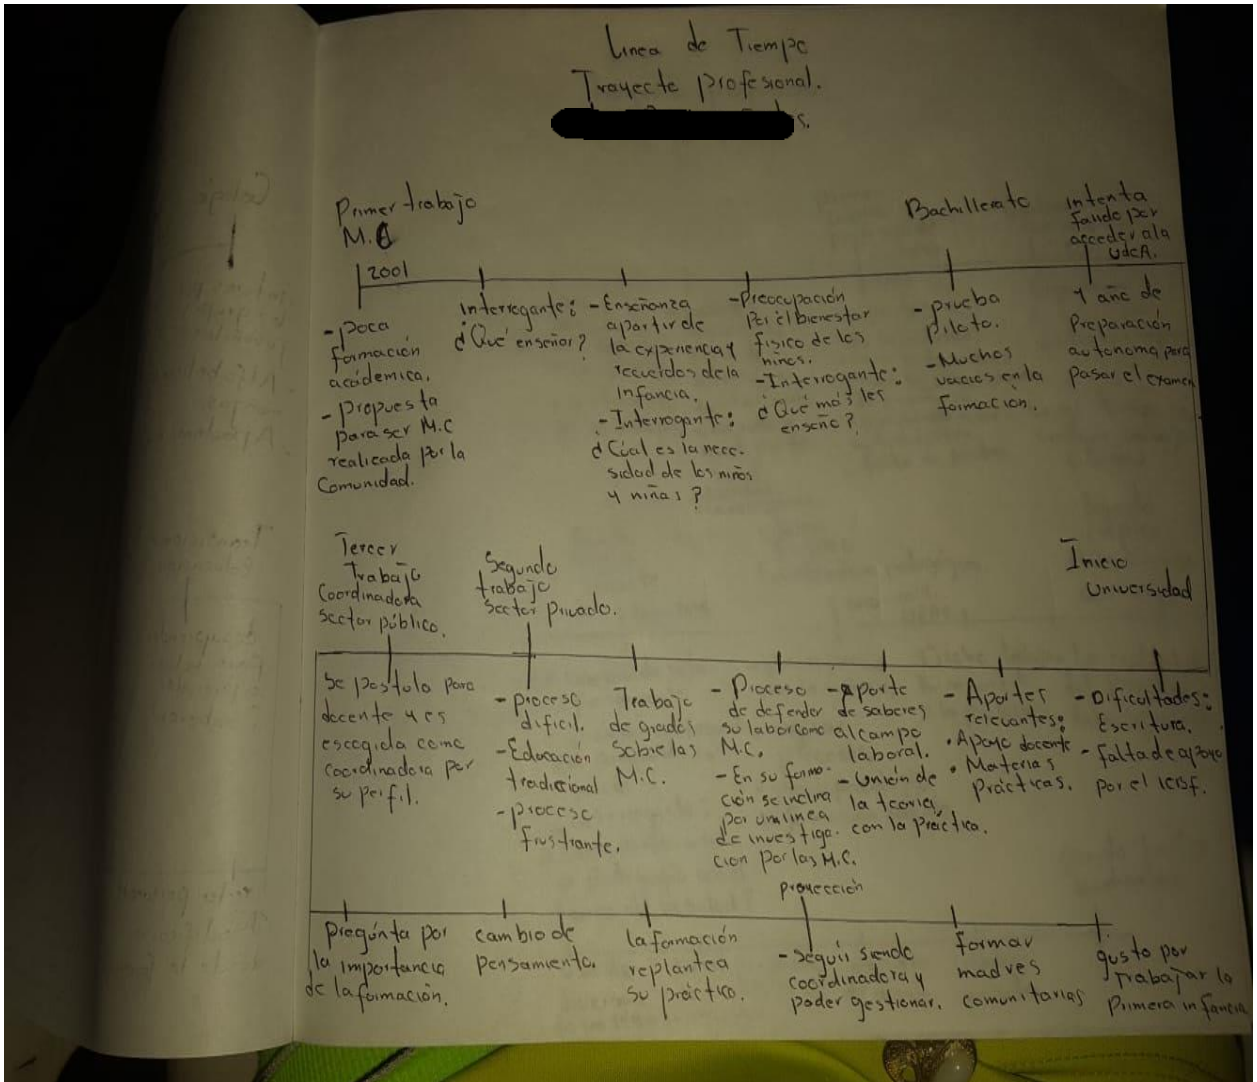 Linea de Tiempo
Trayecto profesional.
s.
Primer trabajo
M.C
2001
- poca
formación
académica.
- propuesta
para ser M.C
realizada por la
Comunidad.
interrogante:
¿Qué enseñar?
- Enseñanza
apartir de
la experiencia y
recuerdos de la
infancia.
- Interrogante:
¿Cúal es la nece-
sidad de los niños
y niñas?
- Preocupación
por el bienestar
fisico de los
niños.
- Interrogante:
¿Qué más les
enseño?
Bachillerato
- prueba
piloto.
- Muchos
vacios en la
formación.
intenta
fallido por
acceder a la
UdeA.
1 año de
Preparación
autonoma para
pasar el examen
Tercer
trabajo
Coordinadora
sector público.
Se postulo para
docente y es
escogida como
coordinadora por
su perfil.
Segundo
trabajo
sector privado.
- proceso
dificil.
- Educación
tradicional
- proceso
frustrante.
Trabajo
de grados
sobre las
M.C.
- Proceso
de defender
su labor como
M.C.
- En su forma-
ción se inclina
por una linea
de investiga-
cion por las M.C.
- Aporte
de saberes
al campo
laboral.
- Unión de
la teoria,
con la práctica.
- Aportes
relevantes:
• Apoyo docente
• Materias
prácticas.
Inicio
universidad
- Dificultades:
Escritura.
- falta de apoyo
por el icbf.
pregúnta por
la importancia
de la formación.
cambio de
pensamiento.
la formación
replantea
su práctica.
proyección
- seguir siendo
coordinadora y
poder gestionar.
formar
madres
comunitarias
gusto por
trabajar la
primera infancia